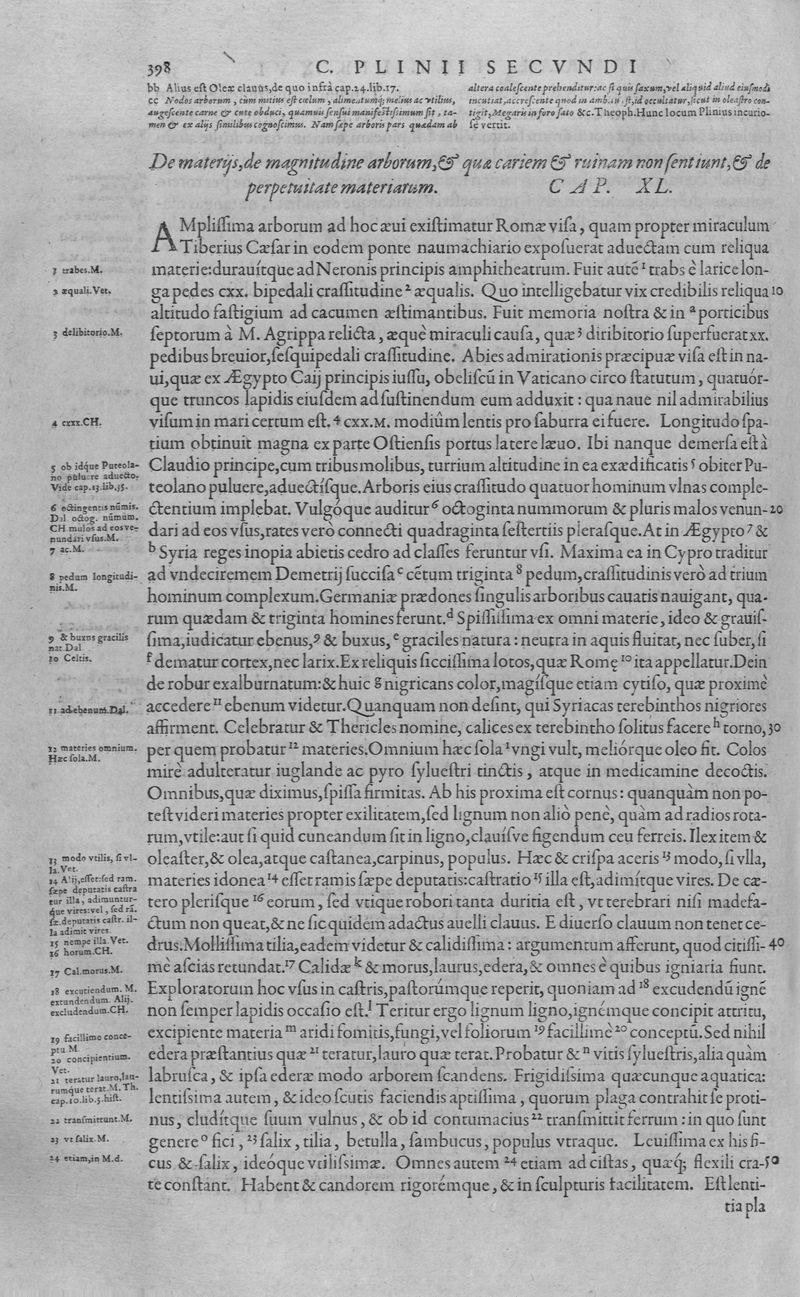 398
C. PLINII SECVNDI
bb Alius est Oleæ clauus, de quo infrà cap.24.lib.17.
cc Nodos arborum, cùm mitius est cœlum, alimentumq́; melius ac vtilius,
augescente carne & cute obduci, quamuis sensui manifestissimum sit, ta-
men & ex alijs similibus cognoscimus. Nam sæpe arboris pars quædam ab
altera coalescente prehenditur: ac si quis saxum, vel aliquid aliud eiusmodi
incutiat, accrescente quod in ambitu est, id occultatur, sicut in oleastro con-
tigit, Megaris in foro sato &c. Theoph. Hunc locum Plinius incurio-
sè vertit.
De materijs, de magnitudine arborum, & quæ cariem & ruinam non sentiunt, & de
perpetuitate materiarum. CAP. XL.
AMplissima arborum ad hoc æui existimatur Romæ visa, quam propter miraculum
Tiberius Cæsar in eodem ponte naumachiario exposuerat aduectam cum reliqua
materie: durauítque ad Neronis principis amphitheatrum. Fuit autē ¹ trabs è larice lon-
ga pedes cxx. bipedali crassitudine ² æqualis. Quo intelligebatur vix credibilis reliqua 10
altitudo fastigium ad cacumen æstimantibus. Fuit memoria nostra & in ᵃ porticibus
septorum à M. Agrippa relicta, æquè miraculi causa, quæ ³ diribitorio superfuerat xx.
pedibus breuior, sesquipedali crassitudine. Abies admirationis præcipuæ visa est in na-
ui, quæ ex Ægypto Caij principis iussu, obeliscū in Vaticano circo statutum, quatuór-
que truncos lapidis eiusdem ad sustinendum eum adduxit: qua naue nil admirabilius
visum in mari certum est. ⁴ cxx.M. modiûm lentis pro saburra ei fuere. Longitudo spa-
tium obtinuit magna ex parte Ostiensis portus latere læuo. Ibi nanque demersa est à
Claudio principe, cum tribus molibus, turrium altitudine in ea exædificatis ⁵ obiter Pu-
teolano puluere, aduectísque. Arboris eius crassitudo quatuor hominum vlnas comple-
ctentium implebat. Vulgóque auditur ⁶ octoginta nummorum & pluris malos venun- 20
dari ad eos vsus, rates verò connecti quadraginta sestertiis plerasque. At in Ægypto ⁷ &
ᵇ Syria reges inopia abietis cedro ad classes feruntur vsi. Maxima ea in Cypro traditur
ad vndeciremem Demetrij succisa ᶜ cētum triginta ⁸ pedum, crassitudinis verò ad trium
hominum complexum. Germaniæ prædones singulis arboribus cauatis nauigant, qua-
rum quædam & triginta homines ferunt. ᵈ Spississima ex omni materie, ideo & grauis-
sima, iudicatur ebenus, ⁹ & buxus, ᵉ graciles natura: neutra in aquis fluitat, nec suber, si
ᶠ dematur cortex, nec larix. Ex reliquis siccissima lotos, quæ Romę ¹⁰ ita appellatur. Dein
de robur exalburnatum: & huic ᵍ nigricans color, magísque etiam cytiso, quæ proximè
accedere ¹¹ ebenum videtur. Quanquam non desint, qui Syriacas terebinthos nigriores
affirment. Celebratur & Thericles nomine, calices ex terebintho solitus facere ʰ torno, 30
per quem probatur ¹² materies. Omnium hæc sola ⁱ vngi vult, meliórque oleo fit. Colos
mirè adulteratur iuglande ac pyro syluestri tinctis, atque in medicamine decoctis.
Omnibus, quæ diximus, spissa firmitas. Ab his proxima est cornus: quanquàm non po-
test videri materies propter exilitatem, sed lignum non aliò penè, quàm ad radios rota-
rum, vtile: aut si quid cuneandum sit in ligno, clauísve figendum ceu ferreis. Ilex item &
oleaster, & olea, atque castanea, carpinus, populus. Hæc & crispa aceris ¹³ modo, si vlla,
materies idonea ¹⁴ esset ramis sæpe deputatis: castratio ¹⁵ illa est, adimítque vires. De cæ-
tero plerisque ¹⁶ eorum, sed vtique robori tanta duritia est, vt terebrari nisi madefa-
ctum non queat, & ne sic quidem adactus auelli clauus. E diuerso clauum non tenet ce-
drus. Mollissima tilia, eadem videtur & calidissima: argumentum afferunt, quod citissi- 40
mè ascias retundat. ¹⁷ Calidæ ᵏ & morus, laurus, edera, & omnes è quibus igniaria fiunt.
Exploratorum hoc vsus in castris, pastorúmque reperit, quoniam ad ¹⁸ excudendū ignē
non semper lapidis occasio est. ˡ Teritur ergo lignum ligno, ignémque concipit attritu,
excipiente materia ᵐ aridi fomitis, fungi, vel foliorum ¹⁹ facillimè ²⁰ conceptū. Sed nihil
edera præstantius quæ ²¹ teratur, lauro quæ terat. Probatur & ⁿ vitis syluestris, alia quàm
labrusca, & ipsa ederæ modo arborem scandens. Frigidissima quæcunque aquatica:
lentissima autem, & ideo scutis faciendis aptissima, quorum plaga contrahit se proti-
nus, cludítque suum vulnus, & ob id contumacius ²² transmittit ferrum: in quo sunt
genere ᵒ fici, ²³ salix, tilia, betulla, sambucus, populus vtraque. Leuissima ex his fi-
cus & salix, ideóque vtilissimæ. Omnes autem ²⁴ etiam ad cistas, quæq́; flexili cra- 50
te constant. Habent & candorem rigorémque, & in sculpturis facilitatem. Est lenti-
tia pla
1 trabes.M.
2 æquali.Vet.
3 delibitorio.M.
4 cxxx.CH.
5 ob idque Puteola-
no puluere aduecto.
Vide cap.13.lib.35.
6 octingentis nūmis.
Dal octog. nūmum.
CH. malos ad eos ve-
nundari vsus.M.
7 ac.M.
8 pedum longitudi-
nis.M.
9 & buxus gracilis
nat.Dal
10 Celtis.
11 ad ebenum.Dal.
12 materies omnium.
Hæc sola.M.
13 modo vtilis, si vl-
la.Vet.
14 Alij, esset: sed ram.
sæpe deputatis castra
tur illa, adimuntur-
que vires: vel, sed rā.
sæ.deputatis castr. il-
la adimit vires.
15 nempe illa.Vet.
16 horum.CH.
17 Cal.morus.M.
18 excutiendum.M.
extundendum. Alij.
excludendum.CH.
19 facillimo conce-
ptu M.
20 concipientium.
Vet.
21 teratur lauro, lau-
rumque terat.M.Th.
cap.10.lib.5.hist.
22 transmittunt.M.
23 vt salix.M.
24 etiam, in M.d.